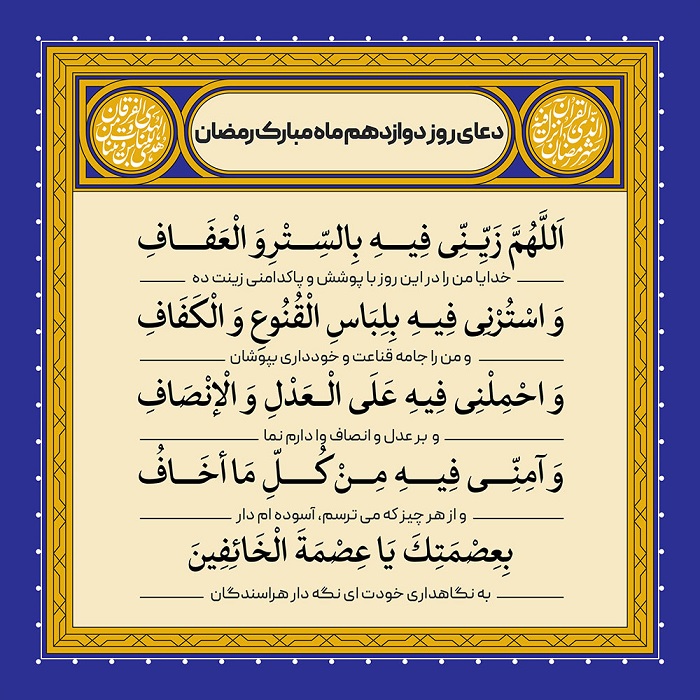 دعای روز دوازدهم ماه مبارک رمضان
اَللَّهُمَّ زَيِّنِّى فِيهِ بِالسِّتْرِ وَ الْعَفَافِ
خدایا من را در این روز با پوشش و پاکدامنی زینت ده
وَ اسْتُرْنِى فِيهِ بِلِبَاسِ الْقُنُوعِ وَ الْكَفَافِ
و من را جامه قناعت و خودداری بپوشان
وَ احْمِلْنِى فِيهِ عَلَى الْعَدْلِ وَ الْإِنْصَافِ
و بر عدل و انصاف وا دارم نما
وَ آمِنِّى فِيهِ مِنْ كُلِّ مَا أَخَافُ
و از هر چیز که می ترسم، آسوده ام دار
بِعِصْمَتِكَ يَا عِصْمَةَ الْخَائِفِينَ
به نگاهداری خودت ای نگه دار هراسندگان